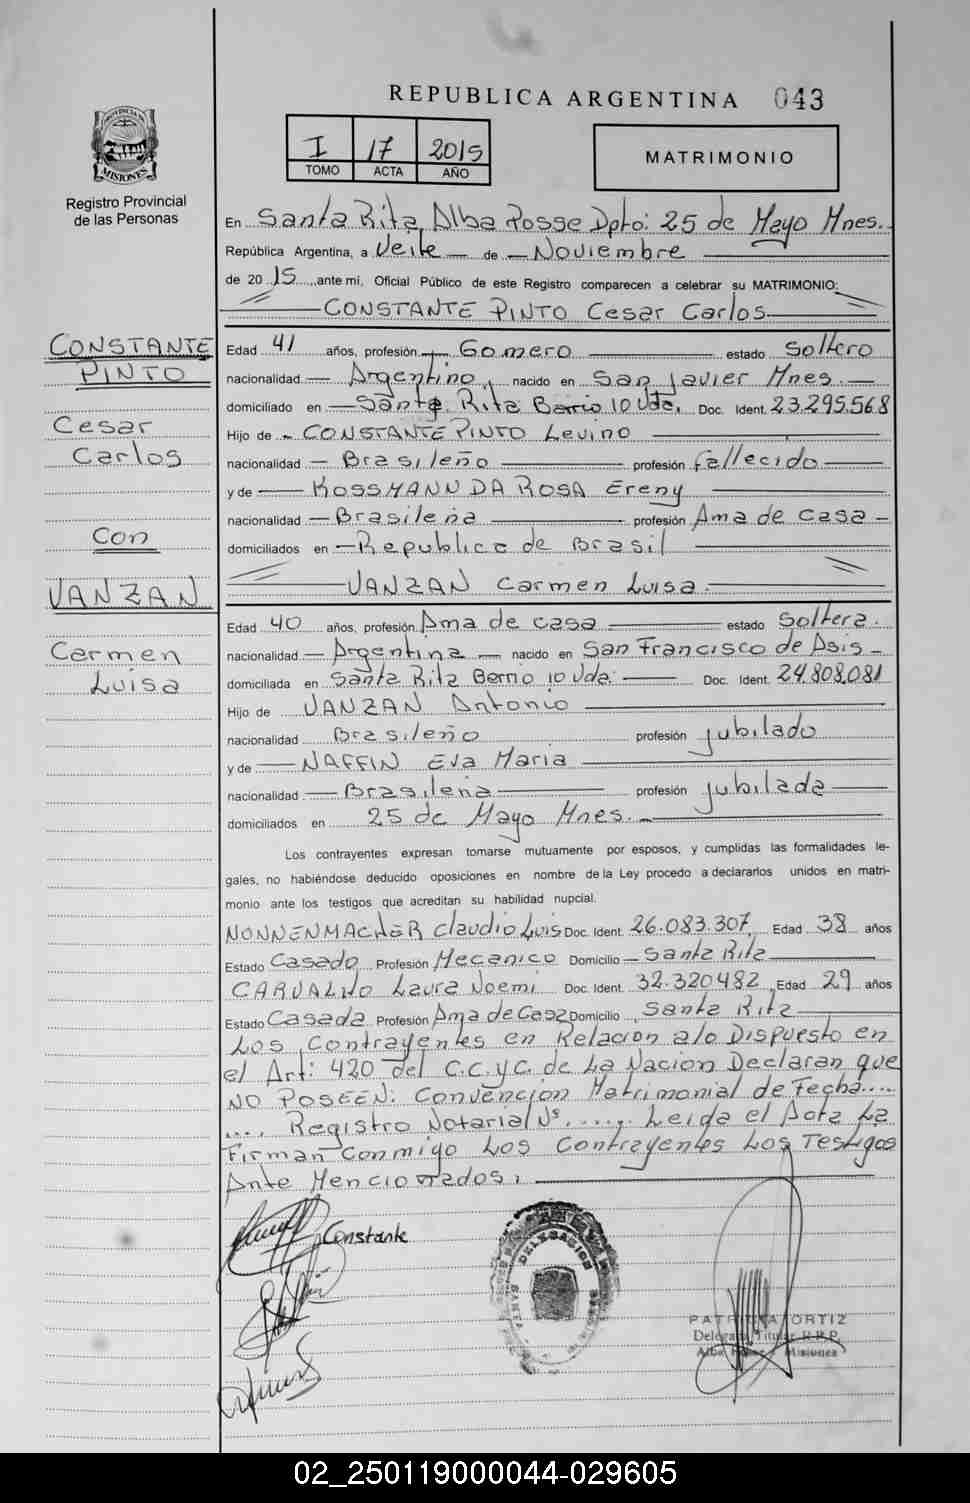 REPUBLICA ARGENTINA 043
PROVINCIA DE MISIONES
Registro Provincial
de las Personas
I 17 2015
TOMO ACTA AÑO
MATRIMONIO
En Santa Rita, Alba Posse Dpto: 25 de Mayo Mnes.
República Argentina, a Veite de Noviembre
de 2015, ante mi, Oficial Público de este Registro comparecen a celebrar su MATRIMONIO:
CONSTANTE PINTO Cesar Carlos
CONSTANTE
PINTO
Cesar
Carlos
Con
VANZAN
Carmen
Luisa
Edad 41 años, profesión Gomero estado Soltero
nacionalidad Argentino, nacido en San Javier Mnes.
domiciliado en Santa Rita Barrio 10 Vda. Doc. Ident. 23.295.568
Hijo de CONSTANTE PINTO Levino
nacionalidad Brasileño profesión fallecido
y de KOSSMANN DA ROSA Ereny
nacionalidad Brasileña profesión Ama de casa
domiciliados en Republica de Brasil
VANZAN Carmen Luisa.
Edad 40 años, profesión Ama de casa estado Soltera.
nacionalidad Argentina nacido en San Francisco de Asis
domiciliada en Santa Rita Barrio 10 Vda. Doc. Ident. 24.808.081
Hijo de VANZAN Antonio
nacionalidad Brasileño profesión jubilado
y de NAFFIN Eva Maria
nacionalidad Brasileña profesión jubilada
domiciliados en 25 de Mayo Mnes.
Los contrayentes expresan tomarse mutuamente por esposos, y cumplidas las formalidades le-
gales, no habiéndose deducido oposiciones en nombre de la Ley procedo a declararlos unidos en matri-
monio ante los testigos que acreditan su habilidad nupcial.
NONNENMACHER Claudio Luis Doc. Ident. 26.083.307, Edad 38 años
Estado Casado Profesión Mecanico Domicilio Santa Rita
CARVALHO Laura Noemi Doc. Ident. 32.320482, Edad 29 años
Estado Casada Profesión Ama de Casa Domicilio Santa Rita
Los Contrayentes en Relacion a lo Dispuesto en
el Art: 420 del C.C.yC. de La Nacion Declaran que
NO POSEEN: Convención Matrimonial de Fecha....
.... Registro Notarial Nº...... Leida el Acta La
Firman Conmigo Los Contrayentes Los Testigos
Ante Mencionados.
Constante
DELEGACION
PATRICIA ORTIZ
Delegada Titular R.P.P.
Alba Posse - Misiones
02_250119000044-029605